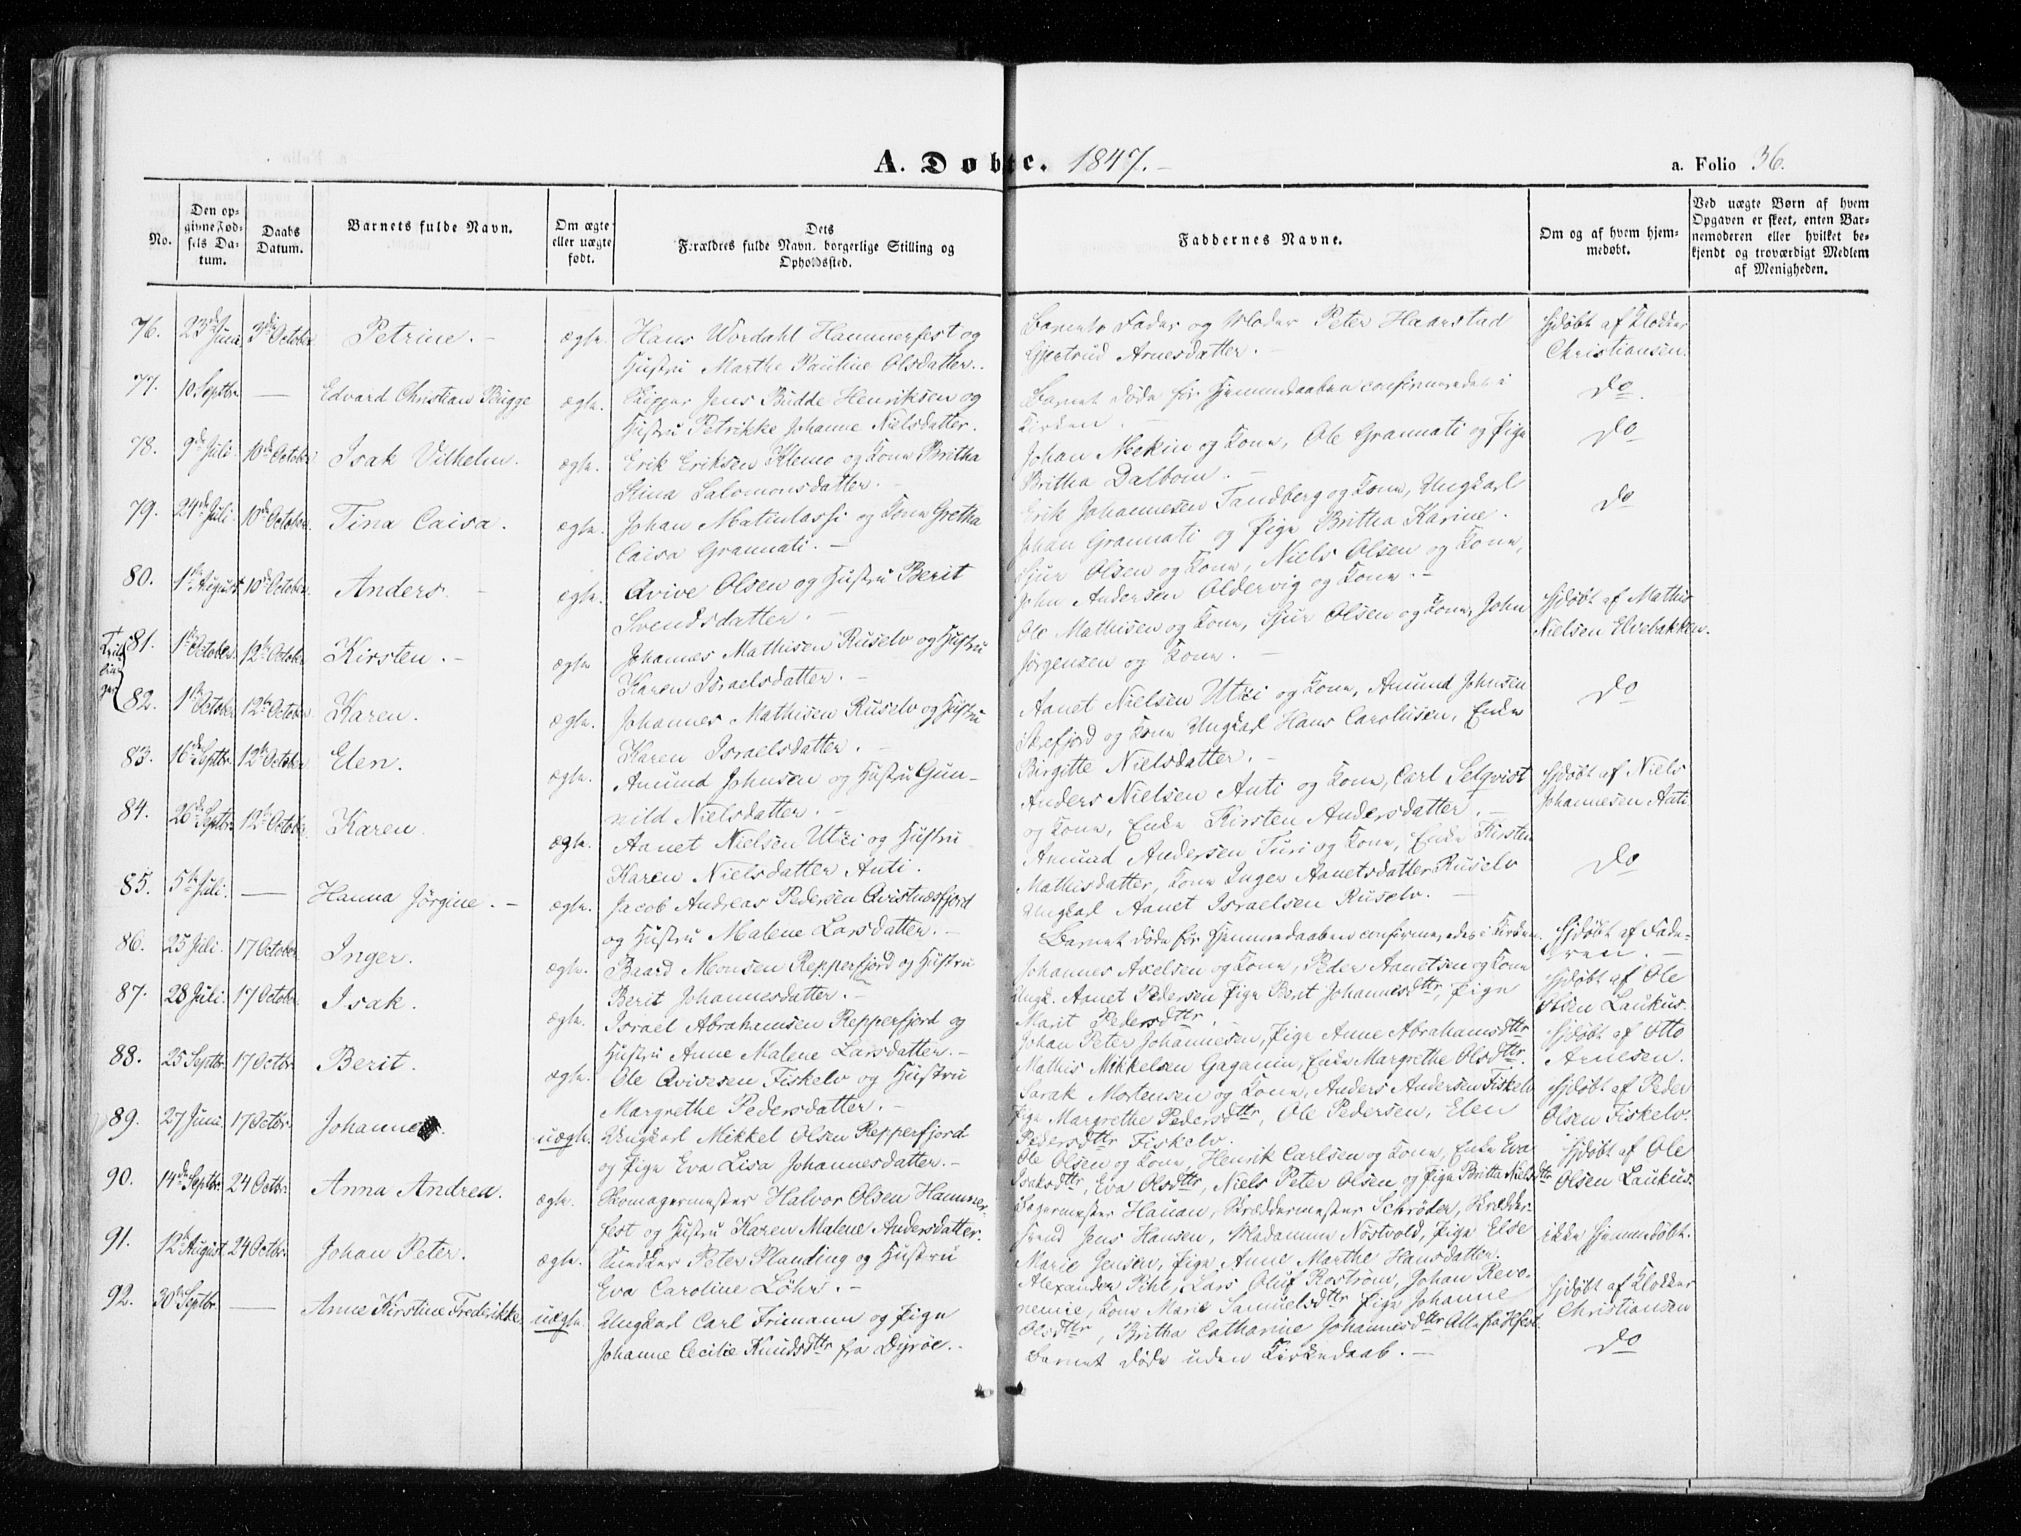 A. Døbte. 1847.-
a. Folio 36.
No.
Den opgivne Fødsels Datum.
Daabs Datum.
Barnets fulde Navn.
Om ægte eller uægte født.
Dets Forældres fulde Navn, borgerlige Stilling og Opholdssted.
Faddernes Navne.
Om og af hvem hjemmedøbt.
Ved uægte Børn af hvem Opgaven er skeet, enten Barnemoderen eller hvilket bekjendt og troværdigt Medlem af Menigheden.
76. 23de Juni 3die October Petrine. - ægte. Hans Wordahl Hammerfest og
Hustru Marthe Pauline Olsdatter..
Barnets Fader og Moder Peter Haarstad
Gjertrud Arnesdatter. -
Hjdøbt af Klokker
Christiansen.
77. 10 Septbr. — Edvard Christian Bugge ægte. Skipper Jens Budde Henriksen og
Hustru Petrikke Johanne Nielsdatter.
Barnet døde før Hjemmedaaben confirmeredes i
Kirken. -
Do.
78. 9de Juli 10de October Isak Vilhelm. ægte. Erik Eriksen Klemo og Kone Britha
Stina Salomonsdatter. -
Johan Mokin og Kone, Ole Grannati og Pige
Britha Dalbom. -
Do
79. 24de Juli. 10de October Tina Caisa. ægte. Johan Matinlassi og Kone Gretha
Caisa Grannati. -
Erik Johannesen Tandberg og Kone, Ungkarl
Johan Grannati og Pige Britha Karine.
Do
80. 1ste August 10de October. Anders. - ægte. Qvive Olsen og Hustru Berit
Svendsdatter. -
Sjur Olsen og Kone, Niels Olsen og Kone,
John Andersen Oldervig og Kone. -
Tvillinger
81. 1ste October 12te October Kirsten. - ægte Johannes Mathisen Ruselv og Hustru
Karen Israelsdatter. -
Ole Mathisen og Kone, Sjur Olsen og Kone, John
Jørgensen og Kone. -
Hjdøbt af Mathis
Nielsen Elvebakken.
82. 1ste October 12te October Karen. ægte. Johannes Mathisen Ruselv og Hustru
Karen Israelsdatter. -
Aanet Nielsen Utsi og Kone, Amund Johnsen
Skrefjord og Kone Ungkarl Hans Carolusen, Enke
Birgitte Nielsdatter. -
Do
83. 16de Septbr. 12te October Elen. ægte. Amund Johnsen og Hustru Gun-
nild Nielsdatter. -
Anders Nielsen Anti og Kone, Carl Selqvist
og Kone, Enke Kirsten Andersdatter. -
Hjdøbt af Niels
Johannesen Anti
84. 26de Septbr. 12te October. Karen. ægte. Aanet Nielsen Utsi og Hustru
Karen Nielsdatter Anti.
Amund Andersen Turi og Kone, Enke Kirsten
Mathisdatter, Kone Inger Aanetsdatter Ruselv
Ungkarl Aanet Israelsen Ruselv. -
Do
85. 5te Juli. — Hanna Jørgine. - ægte. Jacob Andreas Pedersen Qvistnesfjord
og Hustru Malene Larsdatter. -
Barnet døde før Hjemmedaaben confirmeredes i Kirken.
Hjdøbt af Fade-
ren. -
86. 25 Juli. 17 October Inger. ægte. Baard Monsen Repperfjord og Hustru
Berit Johannesdatter. -
Johannes Axelsen og Kone, Peder Aanetsen og Kone
Ungk. Aanet Pedersen Pige Berit Johannesdtr, Pige
Marit Pedersdtr. -
Hjdøbt af Ole
Olsen Laukus.
87. 28 Juli. 17 October Isak. ægte. Israel Abrahamsen Repperfjord og
Hustru Anne Malene Larsdatter. -
Johan Peter Johannesen, Pige Anne Abrahamsdtr
Mathis Mikkelsen Gaganin, Enke Margrethe Olsdtr.
Hjdøbt af Otto
Arnesen.
88. 25 Septbr. 17 Octbr. Berit. ægte. Ole Qvivesen Fiskelv og Hustru
Margrethe Pedersdatter. -
Sarak Mortensen og Kone, Anders Andersen Fiskelv
Pige Margrethe Pedersdtr, Ole Pedersen, Elen
Pedersdtr Fiskelv.
Hjdøbt af Peder
Olsen Fiskelv.
89. 27 Juni. 17 Octbr. Johannes. uægte. Ungkarl Mikkel Olsen Repperfjord
og Pige Eva Lisa Johannesdatter. -
Ole Olsen og Kone, Henrik Carlsen og Kone, Enke Eva
Isaksdtr, Eva Olsdtr, Niels Peter Olsen og Pige Britta Nielsdtr
Hjdøbt af Ole
Olsen Laukus.
90. 14de Septbr. 24 Octbr. Anna Andrea. ægte. Skomagermester Halvor Olsen Hammer-
fest og Hustru Karen Malene Andersdatter.
Bagermester Hauan, Skræddermester Schrøder, Skrædder-
svend Jens Hansen, Madamme Nostvold, Pige Else
Marie Jensen, Pige Anne Marthe Hansdatter.
ikke Hjemmedøbt.
91. 12te August 24 Octbr. Johan Peter. ægte. Snedker Peter Planding og Hustru
Eva Caroline Løhr. -
Alexander Pihl, Lars Oluf Rostrøm, Johan Revo-
nemie, Kone Marie Samuelsdtr Pige Johanne
Olsdtr, Britha Catharine Johannesdtr Alle fra Hfest.
Hjdøbt af Klokker
Christiansen
92. 30te Septbr. — Anne Kirstine Fredrikke. uægte. Ungkarl Carl Frimann og Pige
Johanne Cecilie Knudsdtr fra Dyrøe. -
Barnet døde uden Kirkedaab. -
Do